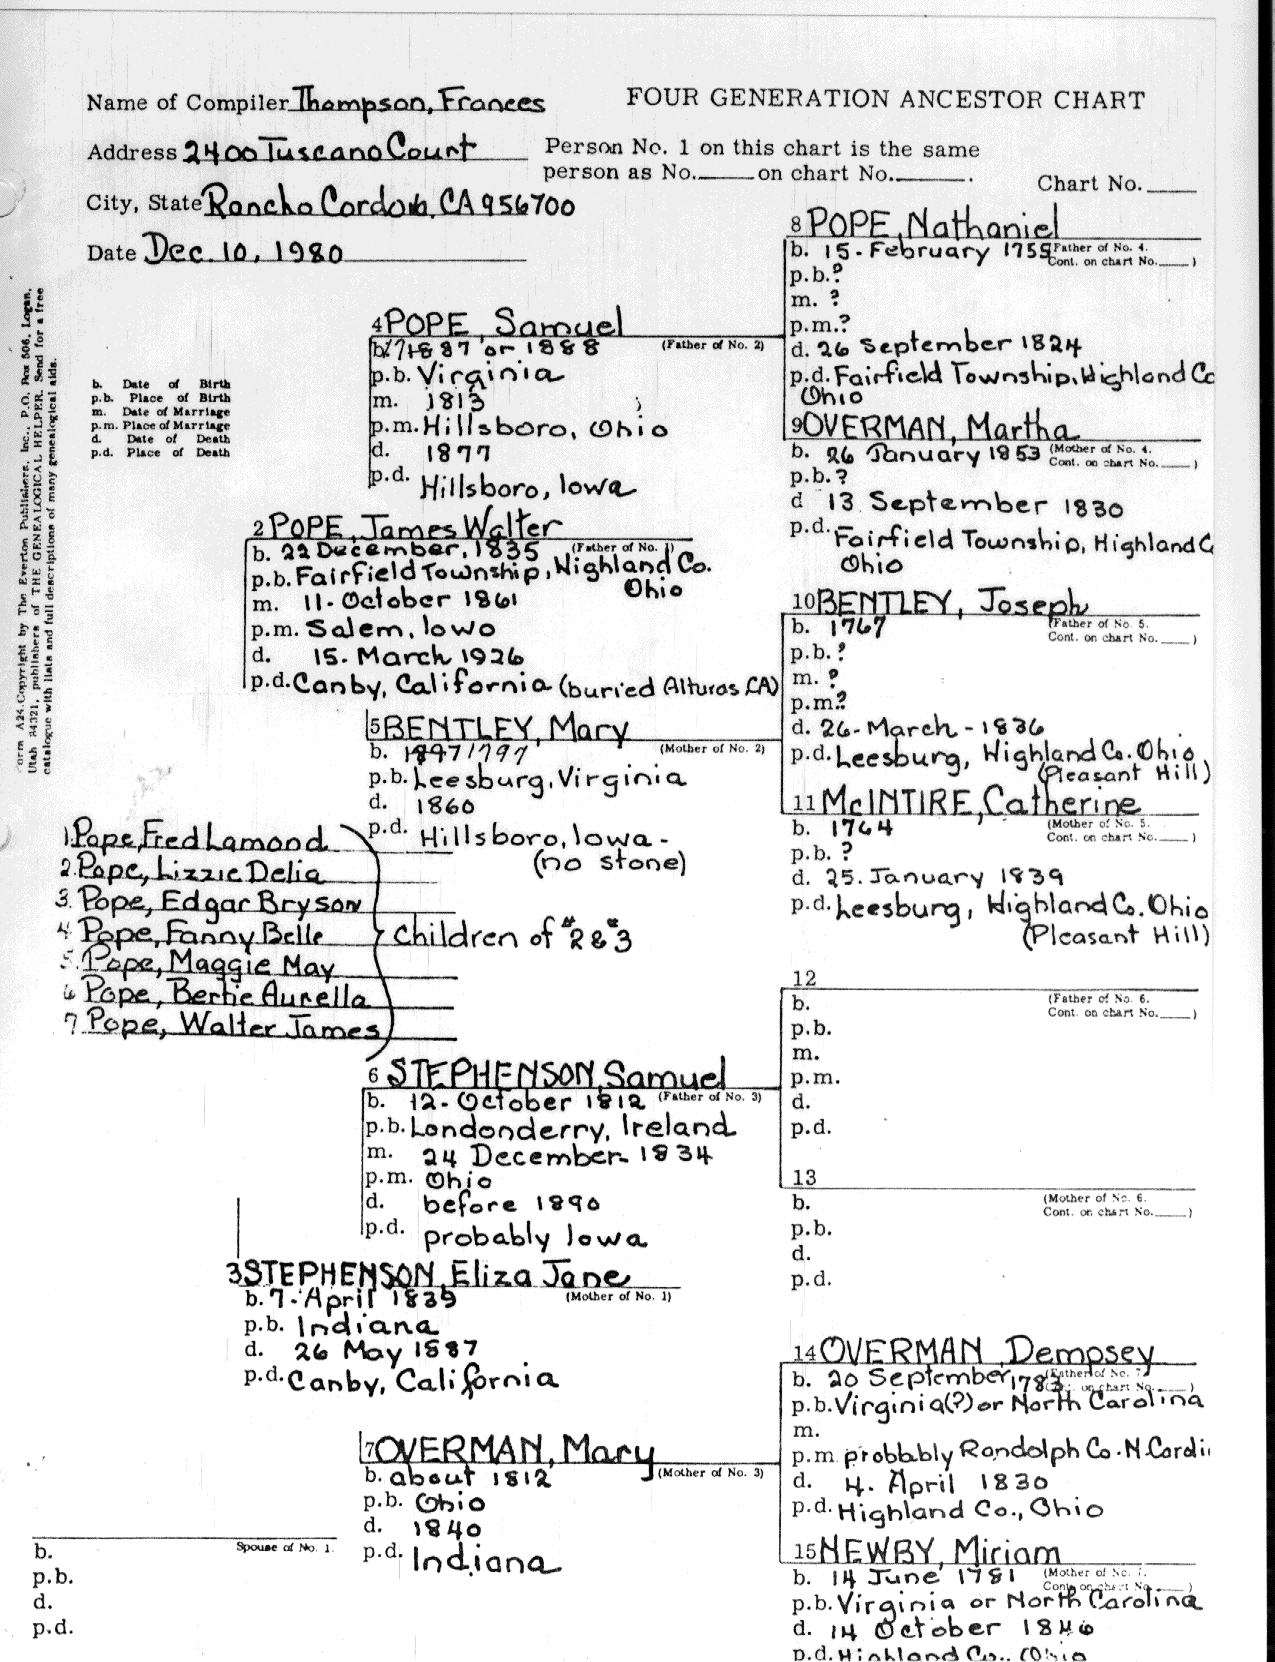 Name of Compiler Thompson, Frances
FOUR GENERATION ANCESTOR CHART
Address 2400 Tuscano Court
Person No. 1 on this chart is the same
person as No.____ on chart No.____.
Chart No.____
City, State Rancho Cordova, CA 956700
Date Dec. 10, 1980
Form A24. Copyright by The Everton Publishers, Inc., P.O. Box 506, Logan,
Utah 84321, publishers of THE GENEALOGICAL HELPER. Send for a free
catalogue with lists and full descriptions of many genealogical aids.
b. Date of Birth
p.b. Place of Birth
m. Date of Marriage
p.m. Place of Marriage
d. Date of Death
p.d. Place of Death
8 POPE, Nathaniel
b. 15-February 1755 (Father of No. 4.
Cont. on chart No.____)
p.b. ?
m. ?
p.m. ?
d. 26 September 1824
p.d. Fairfield Township, Highland Co
Ohio
4 POPE, Samuel
b. 1887 or 1888 (Father of No. 2)
p.b. Virginia
m. 1813
p.m. Hillsboro, Ohio
d. 1877
p.d. Hillsboro, Iowa
9 OVERMAN, Martha
b. 26 January 1853 (Mother of No. 4.
Cont. on chart No.____)
p.b. ?
d 13 September 1830
p.d. Fairfield Township, Highland C
Ohio
2 POPE, James Walter
b. 22 December, 1835 (Father of No. 1)
p.b. Fairfield Township, Highland Co.
Ohio
m. 11-October 1861
p.m. Salem, Iowo
d. 15-March 1926
p.d. Canby, California (buried Alturas CA)
10 BENTLEY, Joseph
b. 1767 (Father of No. 5.
Cont. on chart No.____)
p.b. ?
m. ?
p.m. ?
d. 26-March-1836
p.d. Leesburg, Highland Co. Ohio
(Pleasant Hill)
5 BENTLEY, Mary
b. 1897 1797 (Mother of No. 2)
p.b. Leesburg, Virginia
d. 1860
p.d. Hillsboro, Iowa-
(no stone)
11 McINTIRE, Catherine
b. 1764 (Mother of No. 5.
Cont. on chart No.____)
p.b. ?
d. 25. January 1839
p.d. Leesburg, Highland Co. Ohio
(Pleasant Hill)
1. Pope, Fred Lamond
2. Pope, Lizzie Delia
3. Pope, Edgar Bryson
4. Pope, Fanny Belle
5. Pope, Maggie May
6 Pope, Bertie Aurella
7 Pope, Walter James
Children of #2 & #3
12
b. (Father of No. 6.
Cont. on chart No.____)
p.b.
m.
p.m.
d.
p.d.
6 STEPHENSON, Samuel
b. 12-October 1812 (Father of No. 3)
p.b. Londonderry, Ireland
m. 24 December 1834
p.m. Ohio
d. before 1890
p.d. probably Iowa
13
b. (Mother of No. 6.
Cont. on chart No.____)
p.b.
d.
p.d.
3 STEPHENSON, Eliza Jane
b. 7-April 1839 (Mother of No. 1)
p.b. Indiana
d. 26 May 1887
p.d. Canby, California
14 OVERMAN, Dempsey
b. 20 September, 1783 (Father of No. 7.
Cont. on chart No.____)
p.b. Virginia(?) or North Carolina
m.
p.m probably Randolph Co. N. Caroli
d. 4. April 1830
p.d. Highland Co., Ohio
7 OVERMAN, Mary
b. about 1812 (Mother of No. 3)
p.b. Ohio
d. 1840
p.d. Indiana
15 NEWBY, Miriam
b. 14 June 1781 (Mother of No. 7.
Cont. on chart No.____)
p.b. Virginia or North Carolina
d. 14 October 1846
p.d. Highland Co., Ohio
Spouse of No. 1.
b.
p.b.
d.
p.d.